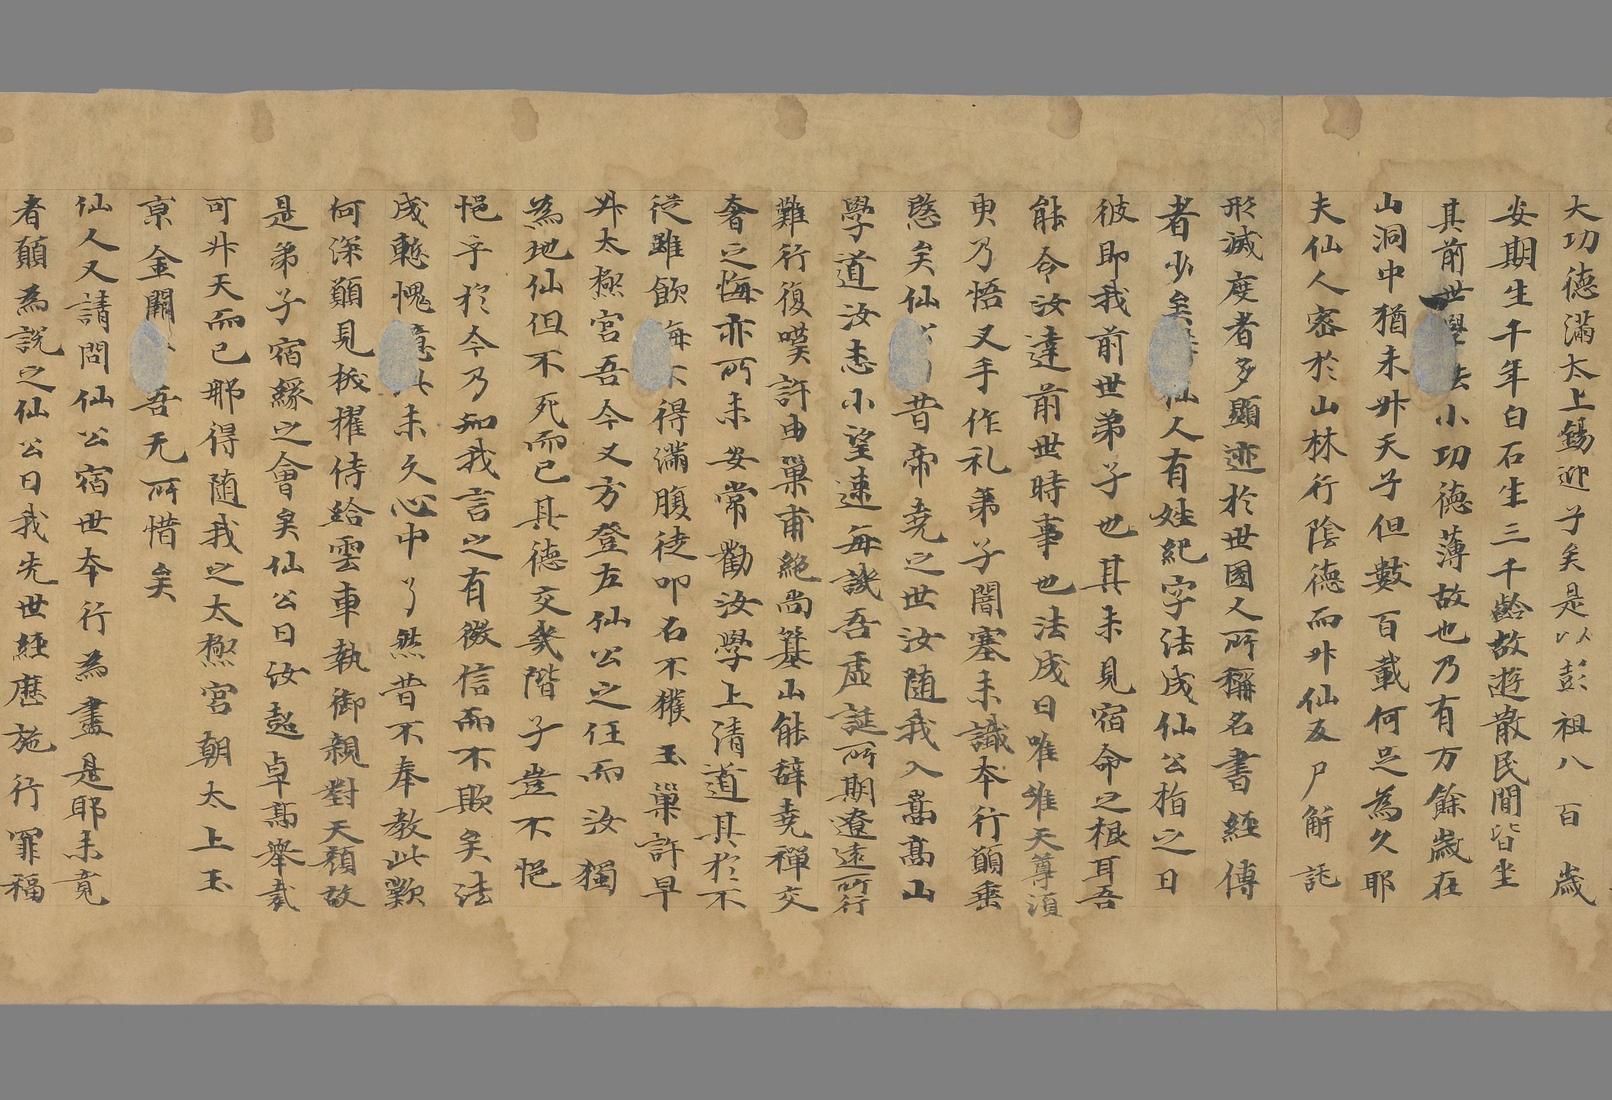 大功德滿太上錫迎子矣是以彭祖八百歲
安期生千年白石生三千齡故遊散民間皆坐
其前世學法小功德薄故也乃有万餘歲在
山洞中猶未升天子但數百載何足為久耶
夫仙人密於山林行陰德而升仙友尸解託
形滅度者多顯迹於世國人所稱名書經傳
者少矣仙人有姓紀字法成仙公指之曰
彼即我前世弟子也其未見宿命之根耳吾
能令汝達前世時事也法成曰唯唯天尊須
臾乃悟叉手作礼弟子闇塞未識本行願垂
愍矣仙公昔帝堯之世汝随我入嵩高山
學道汝志小望速每譏吾虛誕所期遼遠所行
難行復嘆許由巢甫絕尚箕山能辭堯禪交
奢之悔亦所未安常勸汝學上清道其於不
從雖飲海不得滿腹徒叩石不獲玉巢許早
升太極宮吾今又方登左仙公之任而汝獨
為地仙但不死而已其德交我階子豈不悒
悒乎於今乃知我言之有徵信而不欺矣法
成慙愧憶此未久心中了然昔不奉教此歎
何深願見拔擢侍給雲車執御親對天顏故
是弟子宿緣之會矣仙公曰汝趍卓高舉裁
可升天而已那得随我之太極宮朝太上玉
京金闕吾无所惜矣
仙人又請問仙公宿世本行為盡是耶未竟
者願為說之仙公曰我先世經歷施行罪福